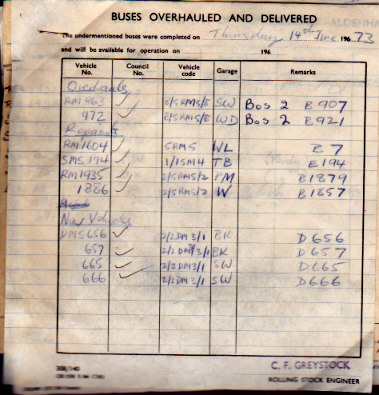 BUSES OVERHAULED AND DELIVERED
The undermentioned buses were completed on Thursday 14th June 1973
and will be available for operation on 196
Vehicle No. Council No. Vehicle code Garage Remarks
Overhauls
RM963 ✓ 6/5RM5/8 SW Box 2 B907
972 ✓ 6/5RM5/8 WD Box 2 B921
Repaints
RM1604 ✓ 5RM5 WL B7
SMS194 ✓ 1/1SM4 TB E194
RM1935 ✓ 2/5RM5/2 PM B1879
1886 ✓ 2/5RM5/2 W B1857
New Vehicles
DMS656 ✓ 2/2DM3/1 BK D656
657 ✓ 2/2DM3/1 BK D657
665 ✓ 2/2DM3/1 SW D665
666 ✓ 2/2DM3/1 SW D666
308/140
C. F. GREYSTOCK
ROLLING STOCK ENGINEER